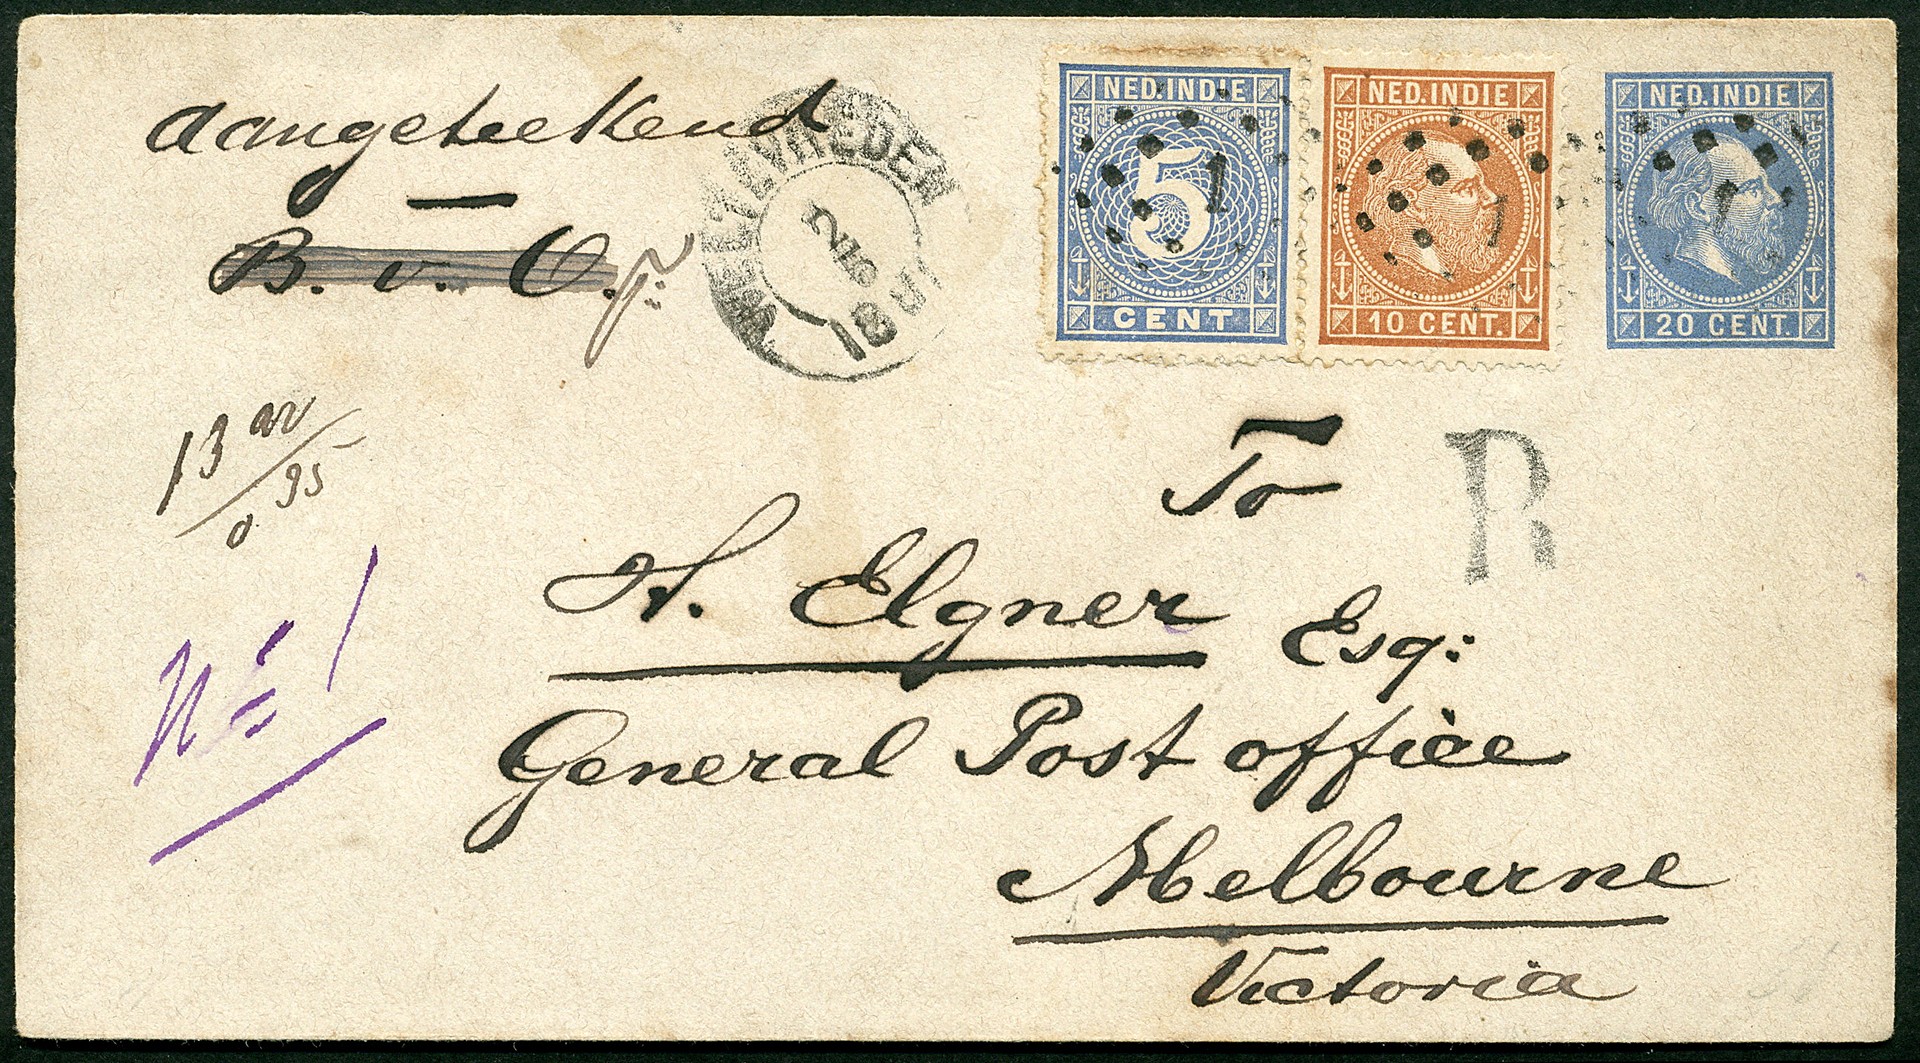 Aangeteekend
B. v. O.
WELTEVREDEN
NED.INDIE
5
1
CENT
NED.INDIE
1
10 CENT.
NED.INDIE
1
20 CENT.
13
0.95
To
R
A. Elgner Esq:
No 1
General Post office
Melbourne
Victoria